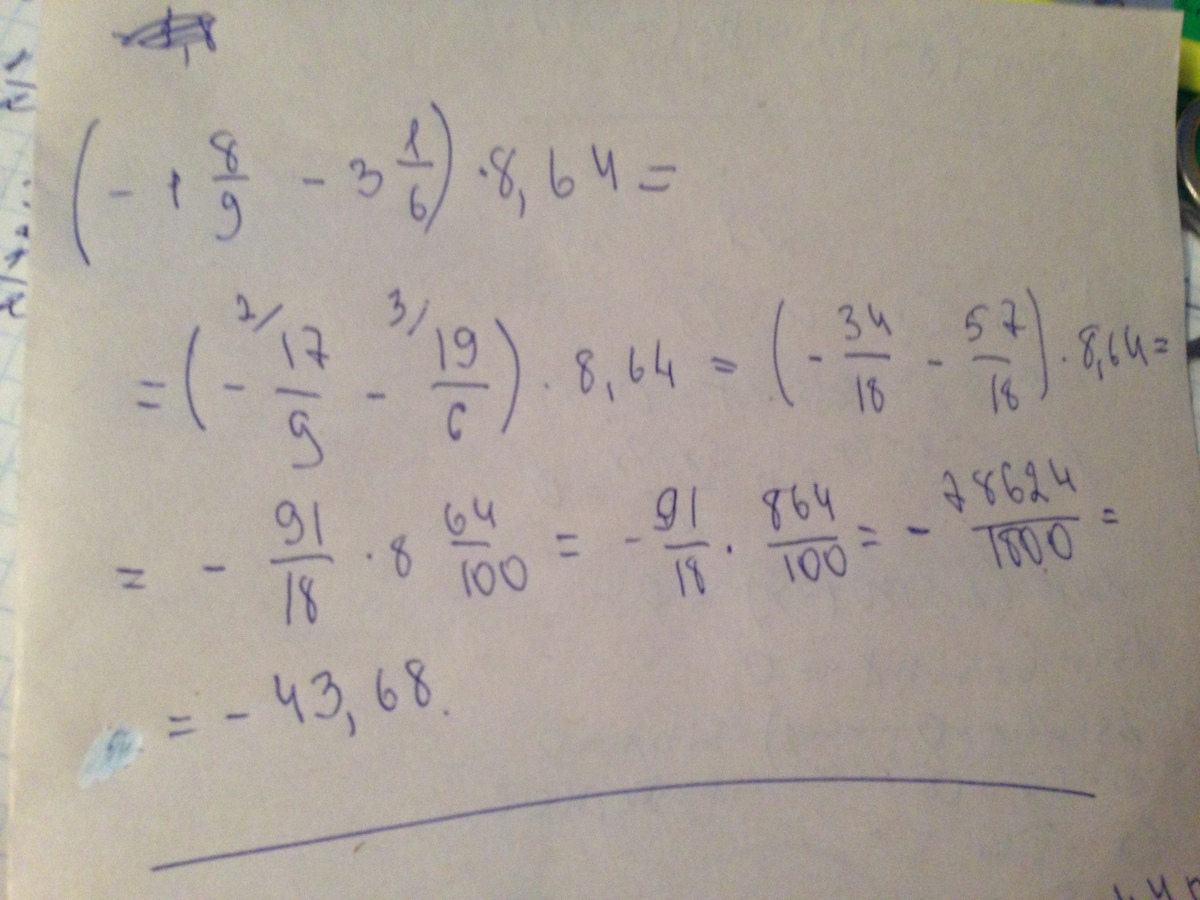 (- 1 8/9 - 3 1/6) · 8,64 =
= (- 2/ 17/9 - 3/ 19/6) · 8,64 = (- 34/18 - 57/18) · 8,64 =
= - 91/18 · 8 64/100 = - 91/18 · 864/100 = - 78624/1800 =
= - 43,68.